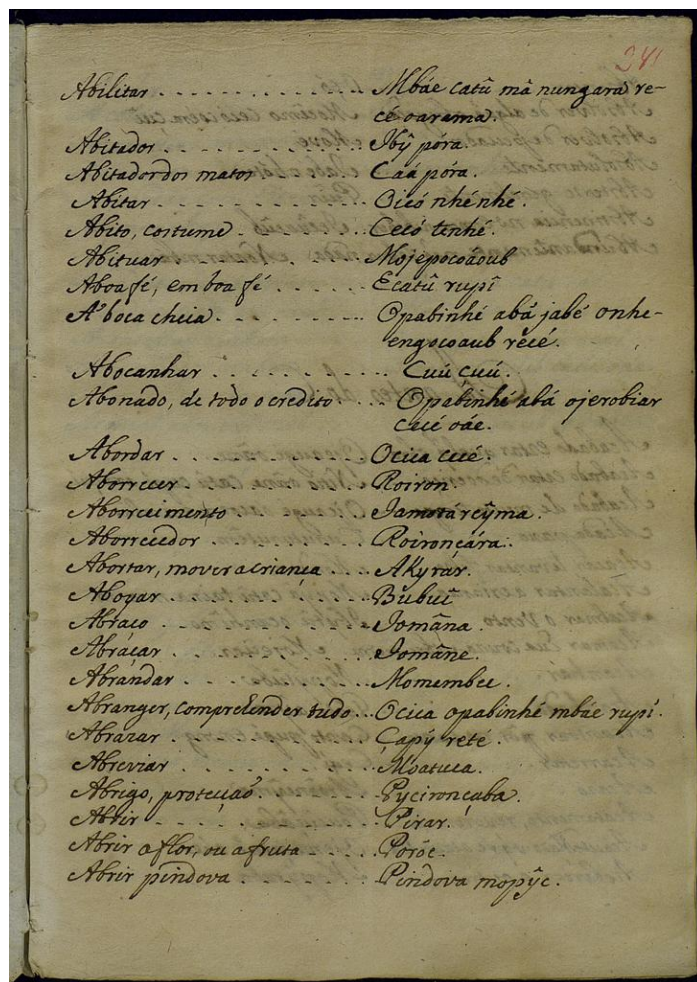 241
Abilitar . . . . . . . . . . . . . Mbáe catû mã nungará re-
cé oarama.
Abitador . . . . . . . . . . . . . Ibŷ póra.
Abitador dos matos . . . . . . Caá póra.
Abitar . . . . . . . . . . . . . Oicó nhénhé.
Abito, costume . . . . . . . . Cecó tenhé.
Abituar . . . . . . . . . . . . Mojepocoáoub
Aboa fé, em boa fé . . . . . . Ecatû rupî
A' boca cheia . . . . . . . . . Opabinhé abá jabé onhe-
engocoaub récé.
Abocanhar . . . . . . . . . . . Cuú cuú.
Abonado, de todo o credito . . . Opabinhé abá ojerobiar
cecé oáe.
Abordar . . . . . . . . . . . . Ocica cecé.
Aborrecer . . . . . . . . . . . Roiron.
Aborrecimento . . . . . . . . . Jamotárcŷma.
Aborrecedor . . . . . . . . . . Roironçára.
Abortar, mover a criança . . . . Akyrár.
Aboyar . . . . . . . . . . . . . Bubuî
Abraço . . . . . . . . . . . . . Jomãna.
Abráçar . . . . . . . . . . . . Jomãne.
Abrándar . . . . . . . . . . . . Momembec.
Abranger, comprehender tudo . . . Ocica opabinhé mbáe rupî.
Abrázar . . . . . . . . . . . . Çapŷ reté.
Abreviar . . . . . . . . . . . . Moatuca.
Abrigo, protecçaõ . . . . . . . Pycironçaba.
Abrir . . . . . . . . . . . . . Pirar.
Abrir a flor, ou a fruta . . . . Poróc.
Abrir pindova . . . . . . . . . Pindova mopŷc.